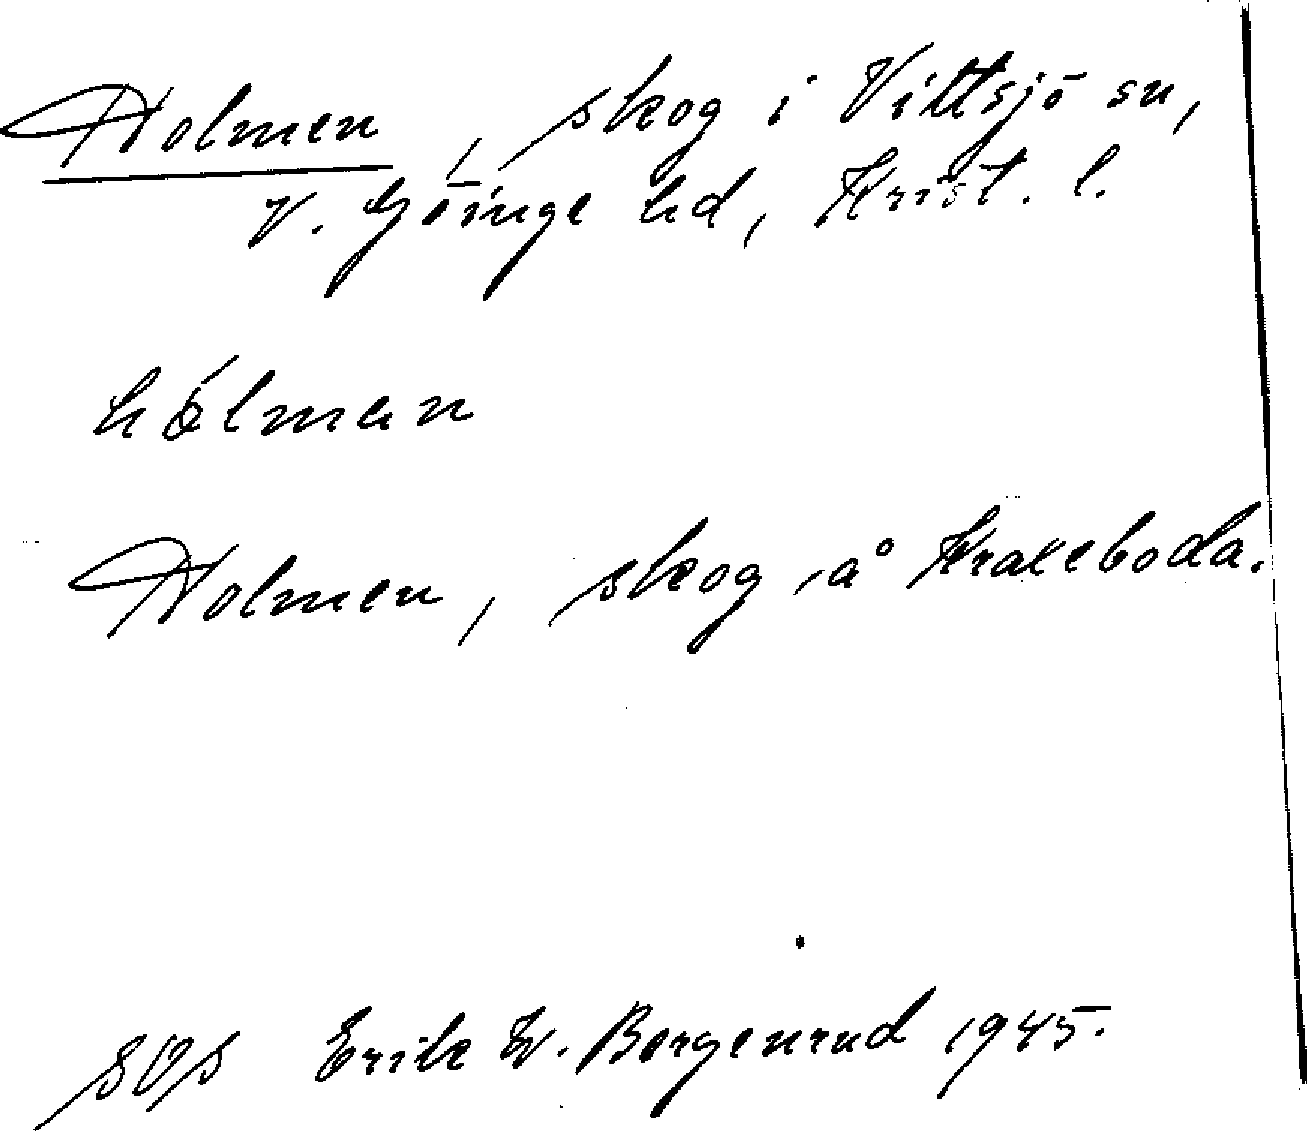 Holmen, skog i Vittsjö sn,
V. Göinge hd, Krist. l.
hólman
Holmen, skog å Kraxeboda.
SOS Erik W. Borgenrud 1945.